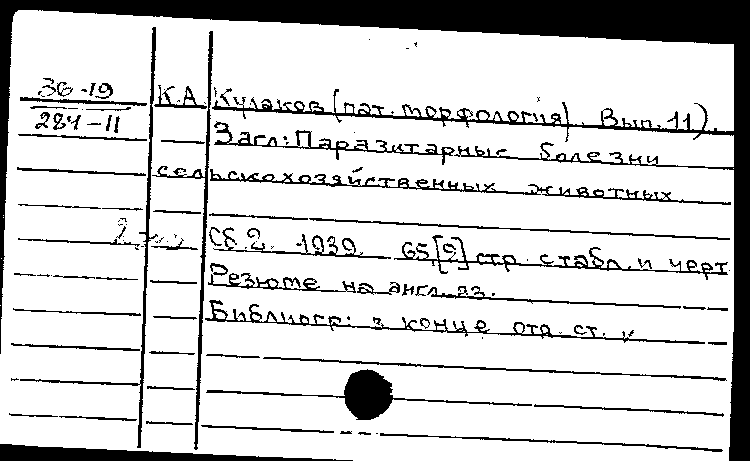 36-19
284-11
К.А. Кулаков (пат. морфология). Вып. 11).
Загл: Паразитарные болезни
сельскохозяйственных животных.
Сб. 2. 1939. 65,[2] стр. с табл. и черт
Резюме на англ. яз.
Библиогр: в конце отд. ст.